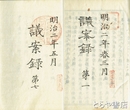 明治二年春三月
議案録
第一
明治二年五月
議案録
第七